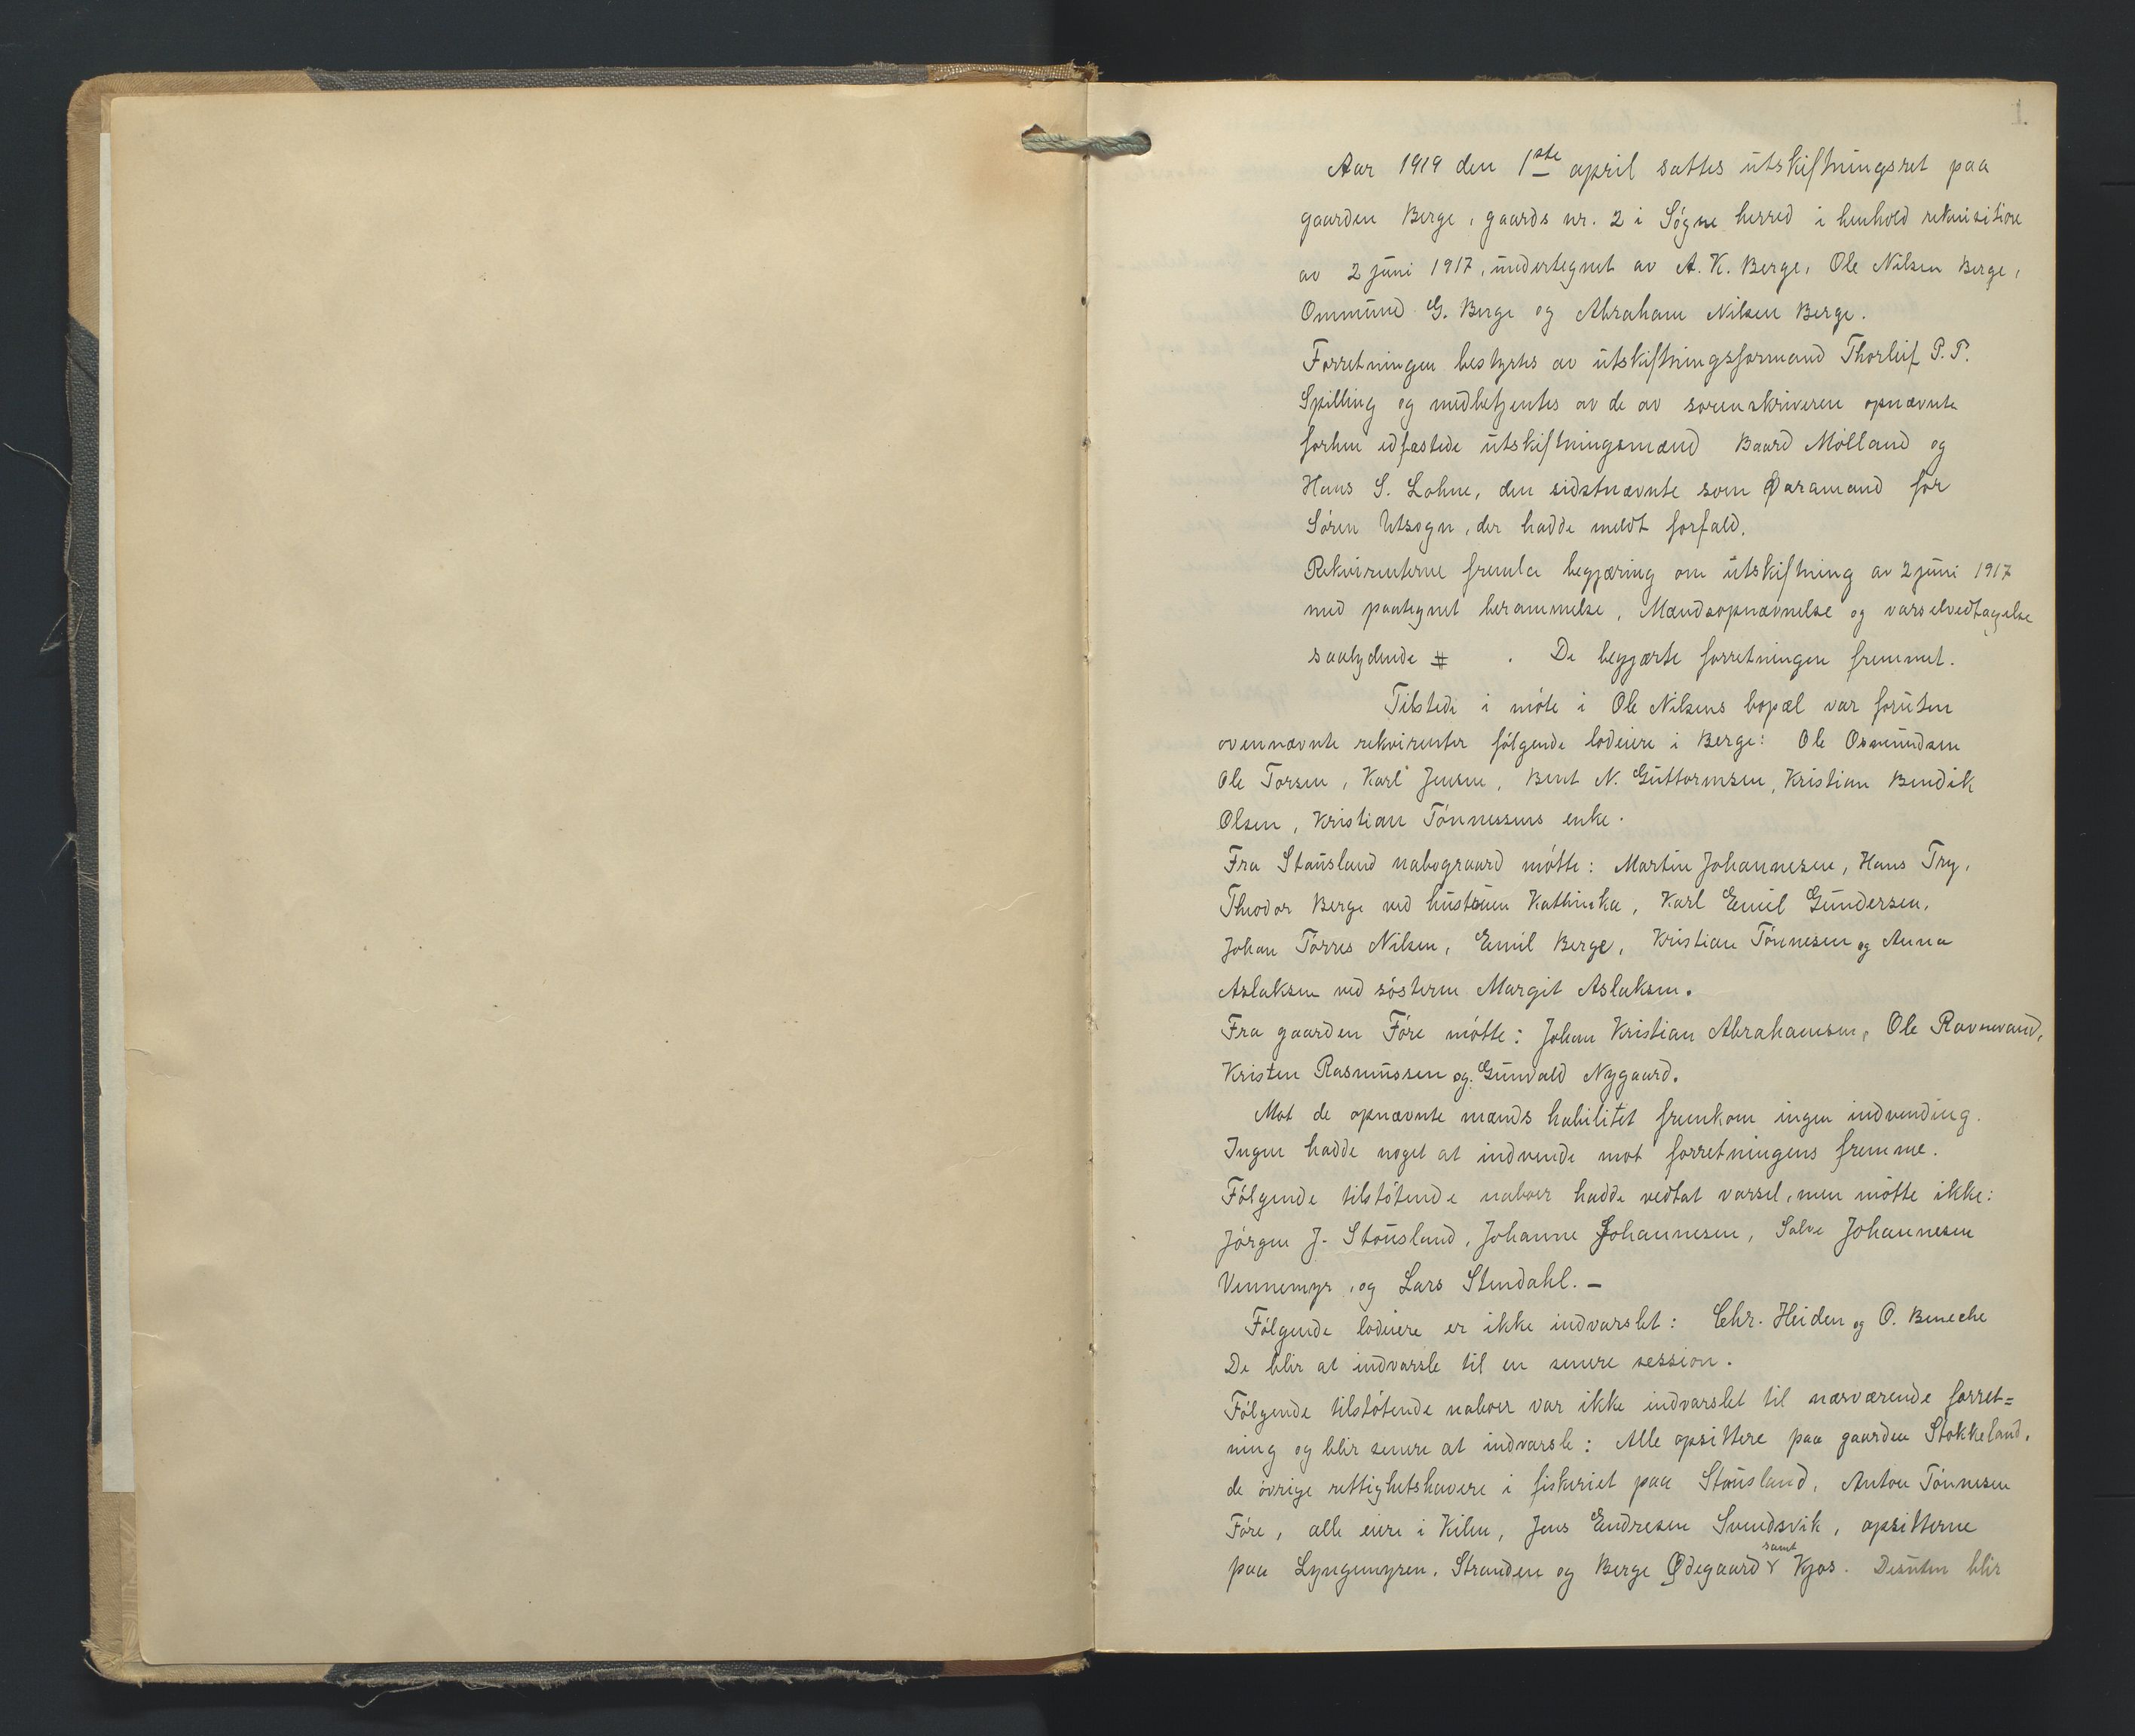 1.
Aar 1919 den 1ste april sattes utskiftningsret paa
gaarden Berge, gaards nr. 2 i Søgne herred i henhold rekvisition
av 2 juni 1917, undertegnet av A. K. Berge, Ole Nilsen Berge,
Ommund G. Berge og Abraham Nilsen Berge.
Forretningen bestyrtes av utskiftningsformand Thorleif P. P.
Spilling og medbetjentes av de av sorenskriveren opnævnte
forhen edfæstede utskiftningsmænd Baard Mølland og
Hans S. Lohne, den sidstnævnte som varamand for
Søren Utsogn, der hadde meldt forfald.
Rekvirenterne fremla begjæring om utskiftning av 2 juni 1917
med paategnet berammelse, Mændsopnævnelse og varselvedtagelse
saalydende # . De begjærte forretningen fremmet.
Tilstede i møte i Ole Nilsens bopæl var foruten
ovennævnte rekvirenter følgende lodeiere i Berge: Ole Osmundsen
Ole Torsen, Karl Jensen, Bent N. Guttormsen, Kristian Bendik
Olsen, Kristian Tønnessens enke.
Fra Stausland nabogaard møtte: Martin Johannesen, Hans Try,
Theodor Berge ved hustruen Kathinka, Karl Emil Gundersen,
Johan Tørres Nilsen, Emil Berge, Kristian Tønnesen og Anna
Aslaksen ved søsteren Margit Aslaksen.
Fra gaarden Føre møtte: Johan Kristian Abrahamsen, Ole Ravnevand,
Kristen Rasmussen og Gunvald Nygaard.
Mot de opnævnte mænds habilitet fremkom ingen indvending.
Ingen hadde noget at indvende mot forretningens fremme.
Følgende tilstøtende naboer hadde vedtat varsel, men møtte ikke:
Jørgen J. Stausland, Johanne Johannesen, Salve Johannesen
Vennemyr, og Lars Stendahl. –
Følgende lodeiere er ikke indvarslet: Chr. Heiden og O. Beneche
De blir at indvarsle til en senere session.
Følgende tilstøtende naboer var ikke indvarslet til nærværende forret=
ning og blir senere at indvarsle: Alle opsittere paa gaarden Stokkeland,
de øvrige rettighetshavere i fiskeriet paa Stausland, Anton Tønnesen
Føre, alle eiere i Kilen, Jens Endresen Svendsvik, opsitterne
paa Lyngemyren, Stranden og Berge Ødegaard samt Kjos. Desuten blir